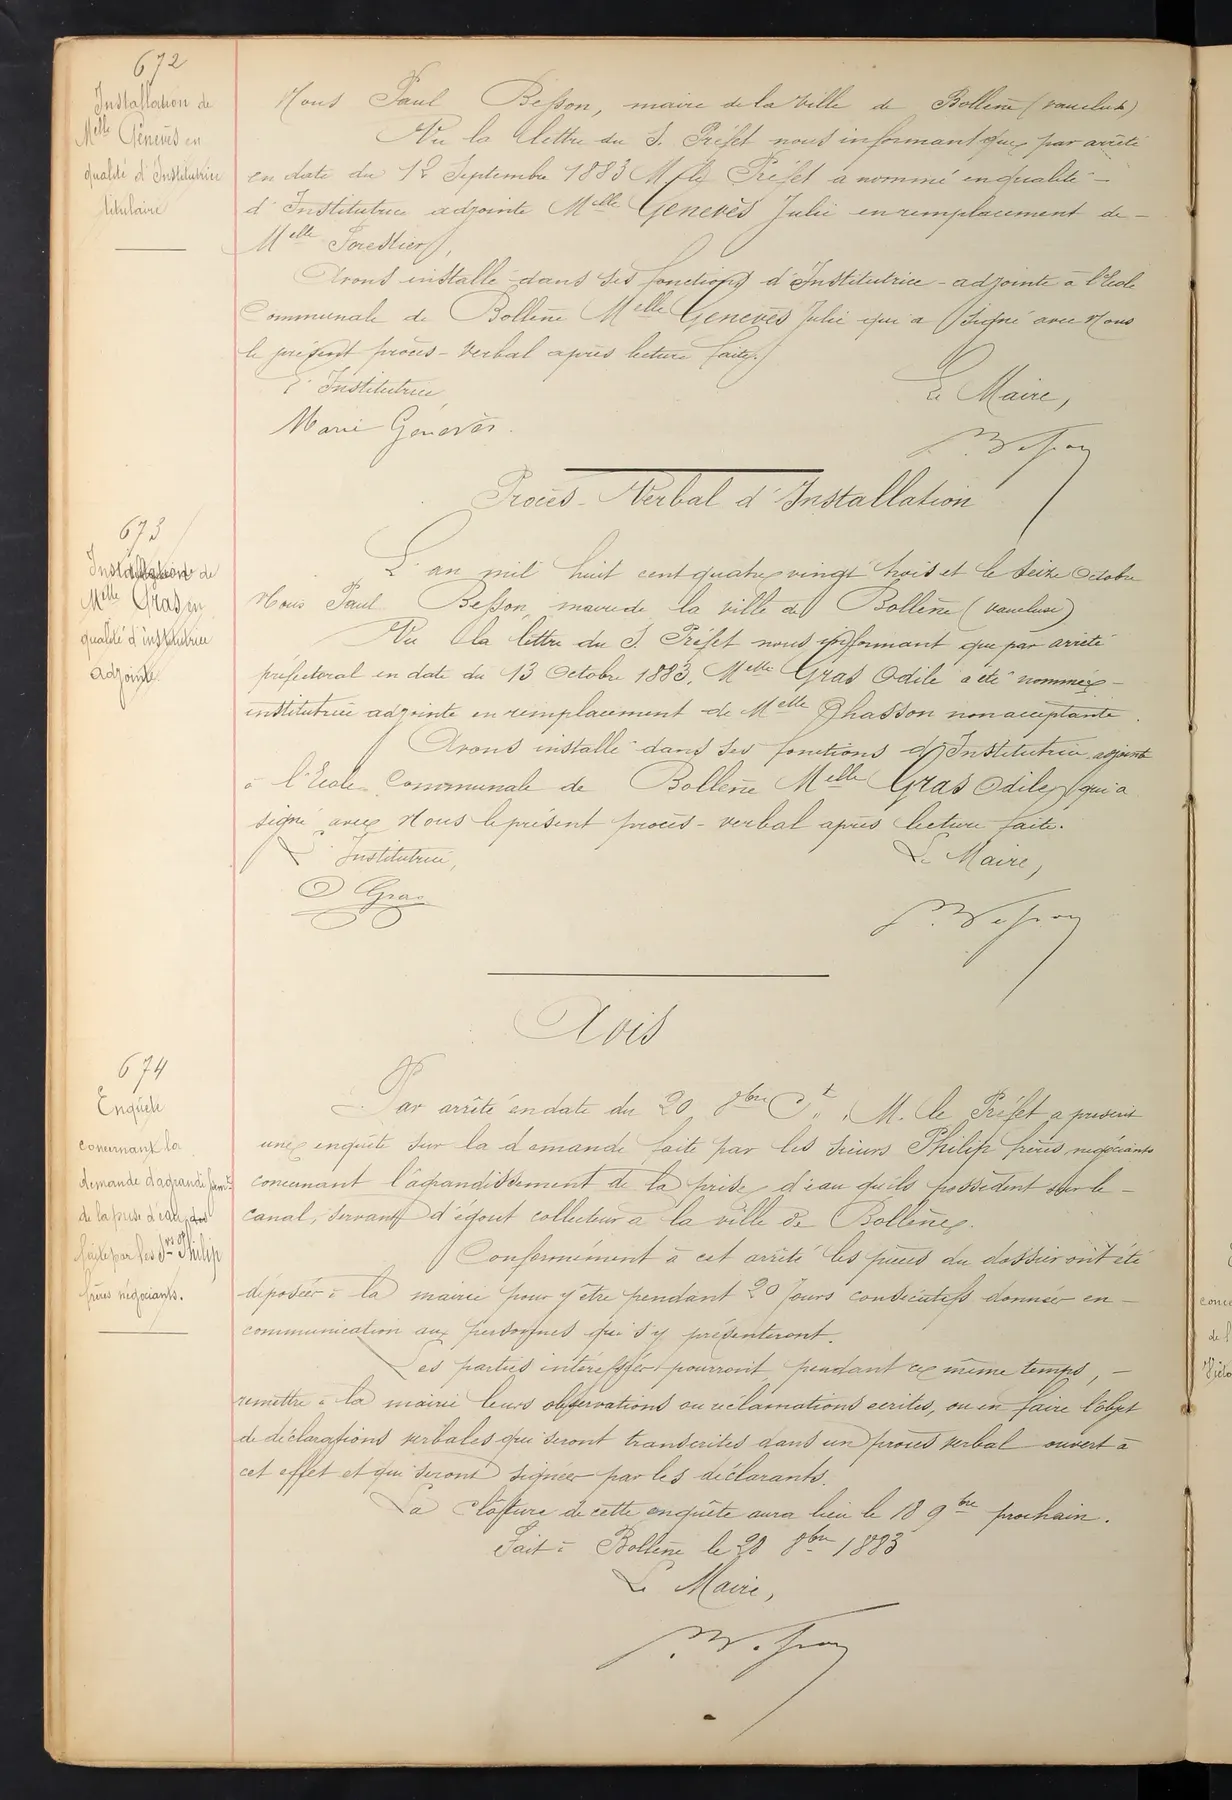 672
Installation de
Melle Genevès en
qualité d'Institutrice
titulaire
Nous Paul Besson, maire de la ville de Bollène (vaucluse)
Vu la lettre du S. Préfet nous informant que par arrêté
en date du 12 Septembre 1883 M. le Préfet a nommé en qualité -
d'Institutrice adjointe Melle Genevès Julie en remplacement de -
Melle Forestier,
Avons installé dans ses fonctions d'Institutrice - adjointe à l'Ecole
Communale de Bollène Melle Genevès Julie qui a signé avec Nous
le présent procès-verbal après lecture faite.
L'Institutrice, Le Maire,
Marie Genevès. P. Besson
673
Installation de
Melle Gras en
qualité d'institutrice
adjointe
Procès-Verbal d'Installation
L'an mil huit cent quatre vingt trois et le seize Octobre
Nous Paul Besson, maire de la ville de Bollène (vaucluse)
Vu la lettre du S. Préfet nous informant que par arrêté
préfectoral en date du 13 Octobre 1883, Melle Gras Odile a été nommée -
institutrice adjointe en remplacement de Melle Chasson non acceptante.
Avons installé dans ses fonctions d'Institutrice adjointe
à l'Ecole Communale de Bollène Melle Gras Odile qui a
signé avec Nous le présent procès-verbal après lecture faite.
L'Institutrice, Le Maire,
O Gras P. Besson
674
Enquête
concernant la
demande d'agrandissemt
de la prise d'eau
faite par les Srs Philip
frères négociants.
Avis
Par arrêté en date du 20 8bre Ct, M. le Préfet a prescrit
une enquête sur la demande faite par les sieurs Philip frères négociants
concernant l'agrandissement de la prise d'eau qu'ils possèdent sur le -
canal, servant d'égout collecteur à la ville de Bollène.
Conformément à cet arrêté les pièces du dossier ont été
déposées à la mairie pour y être pendant 20 jours consécutifs données en -
communication aux personnes qui s'y présenteront.
Les parties intéressées pourront, pendant ce même temps, -
remettre à la mairie leurs observations ou réclamations écrites, ou en faire l'objet
de déclarations verbales qui seront transcrites dans un procès verbal ouvert à
cet effet et qui seront signées par les déclarants.
La clôture de cette enquête aura lieu le 18 9bre prochain.
Fait à Bollène le 20 8bre 1883
Le Maire,
P. Besson